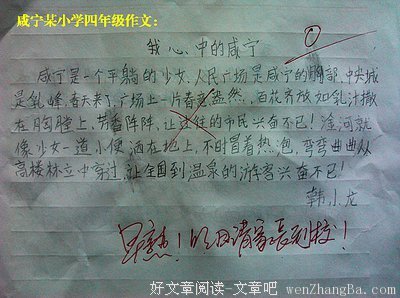 咸宁某小学四年级作文:
0
我心中的咸宁
咸宁是一个平躺的少女、人民广场是咸宁的胸部,中央城
是乳峰、春天来了、广场上一片春意盎然、百花齐放如乳汁撒
在胸膛上、芳香阵阵,让过往的市民兴奋不已!淦河就
像少女一道小便洒在地上,不时冒着热泡,弯弯曲曲从
高楼林立中穿过,让全国到温泉的游客兴奋不已!
韩小龙
早熟!明日请家长到校!
好文章阅读-文章吧 wenZhangBa.com